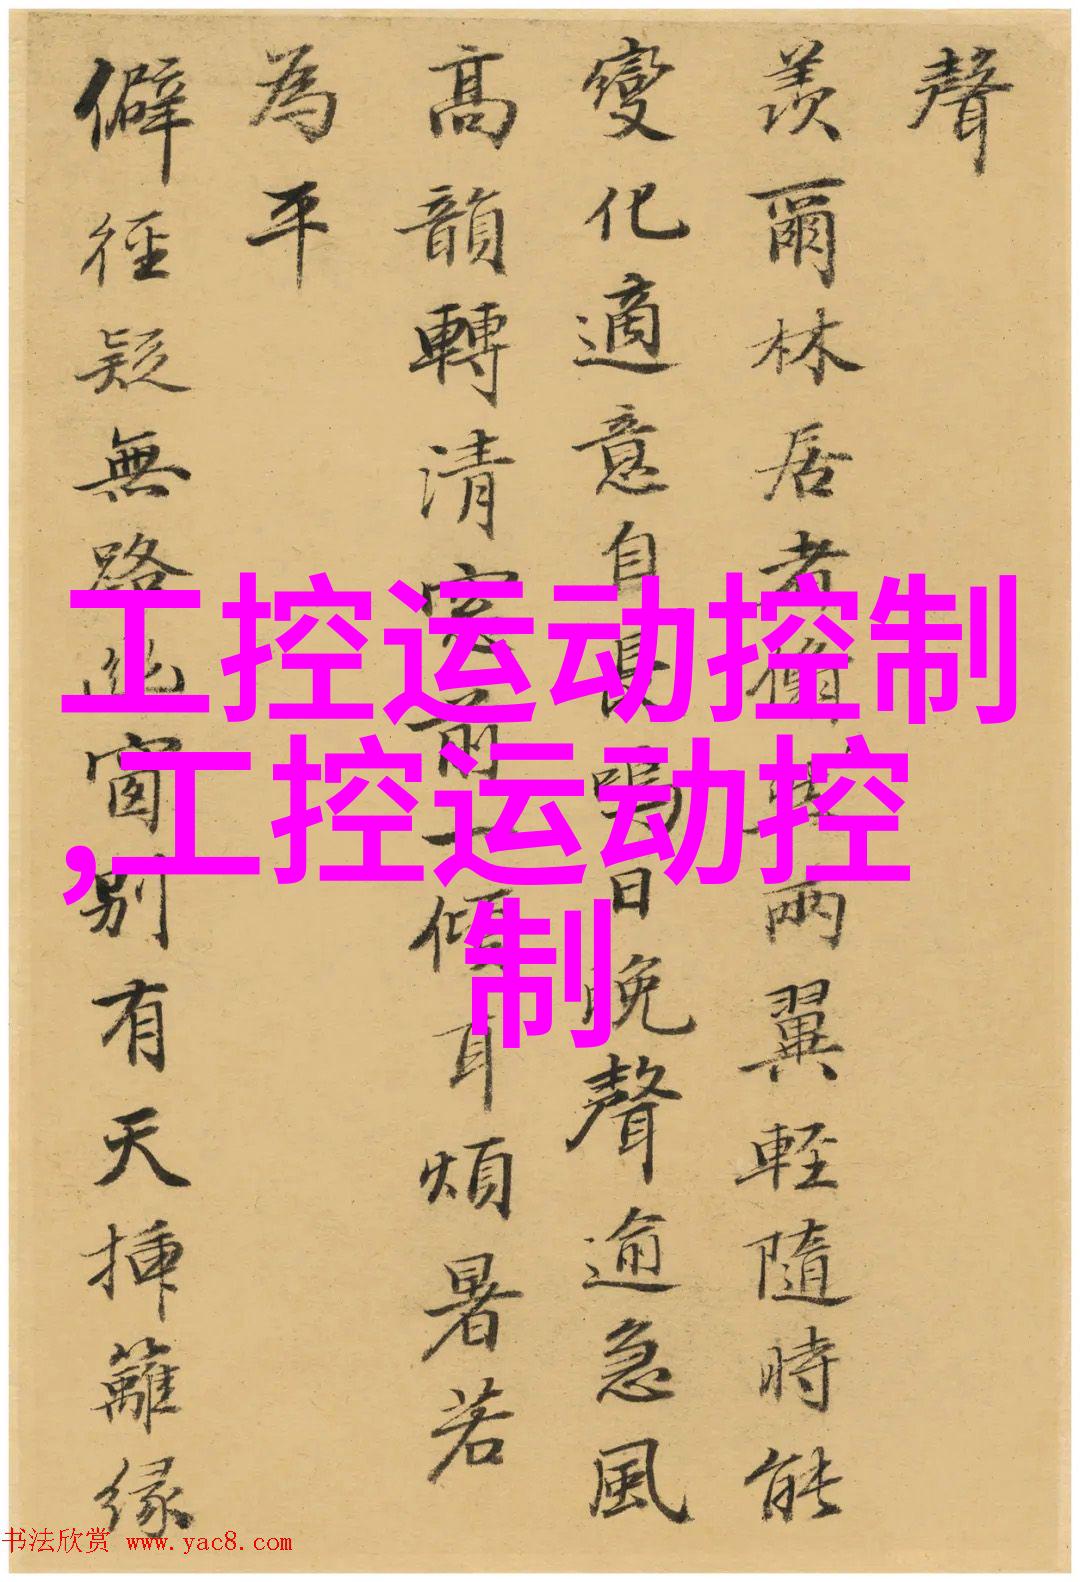 聲
羨爾林居者脩㪅兩翼輕隨時能
變化適意自長鳴日晚聲逾急風
高韻轉清窓前一傾耳煩暑若
為平
僻徑疑無路此窗別有天揷籬緣
工控运动控制
,工控运动控
制
书法欣赏 www.yac8.com